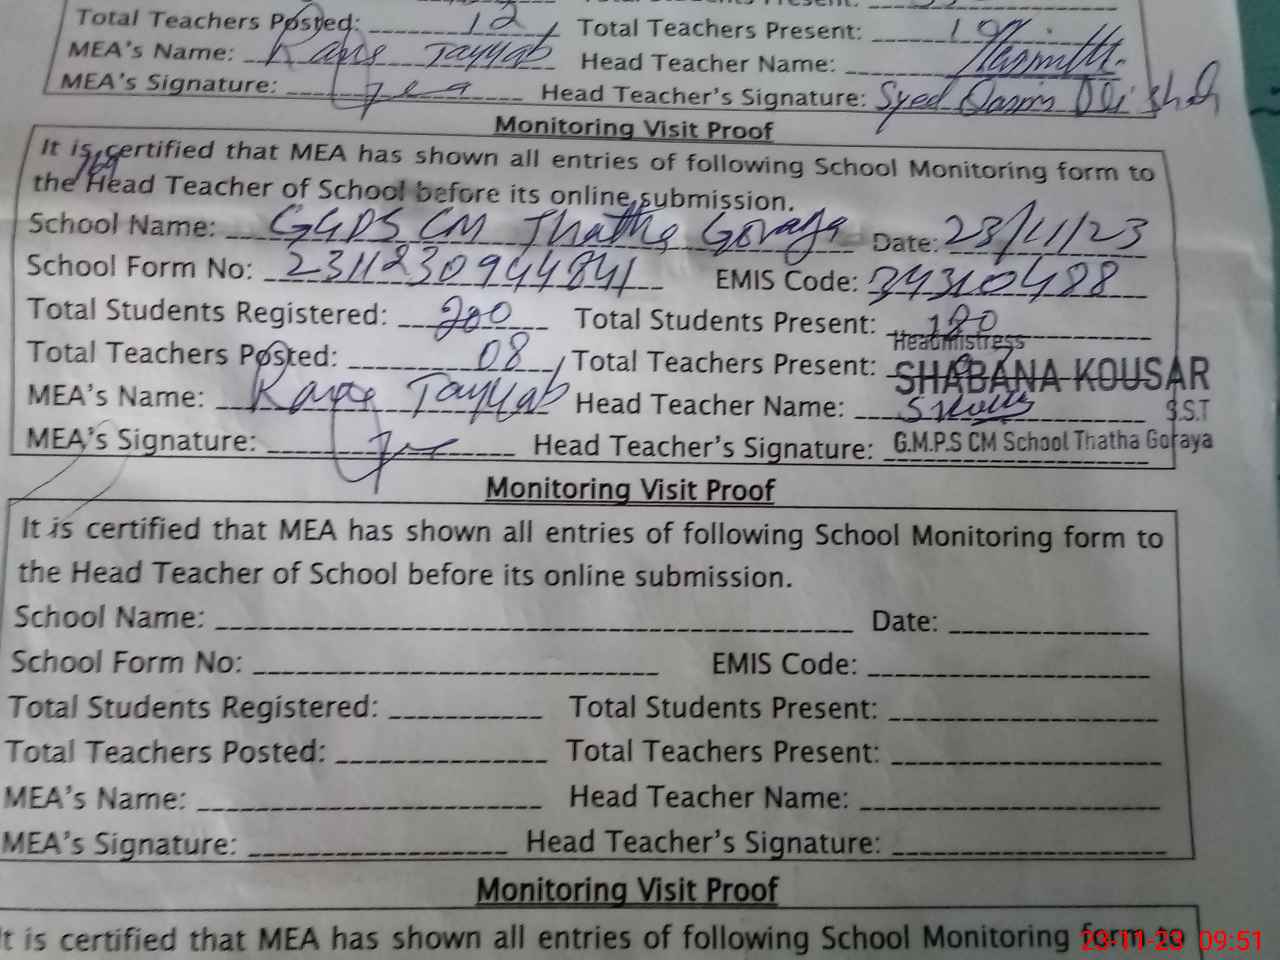 Total Teachers Posted: 12 Total Teachers Present:
MEA's Name: Tayyab Head Teacher Name:
MEA's Signature: Head Teacher's Signature: Syed Qasim Ali Shah
Monitoring Visit Proof
It is certified that MEA has shown all entries of following School Monitoring form to
the Head Teacher of School before its online submission.
School Name: GGPS CM Thatha Goraya Date: 23/11/23
School Form No: 231123094484 EMIS Code: 34310488
Total Students Registered: 200 Total Students Present: 180
Total Teachers Posted: 08 Total Teachers Present:
Headmistress
SHABANA KOUSAR
MEA's Name: Tayyab Head Teacher Name: S.S.T
MEA's Signature: Head Teacher's Signature: G.M.P.S CM School Thatha Goraya
Monitoring Visit Proof
It is certified that MEA has shown all entries of following School Monitoring form to
the Head Teacher of School before its online submission.
School Name: Date:
School Form No: EMIS Code:
Total Students Registered: Total Students Present:
Total Teachers Posted: Total Teachers Present:
MEA's Name: Head Teacher Name:
MEA's Signature: Head Teacher's Signature:
Monitoring Visit Proof
It is certified that MEA has shown all entries of following School Monitoring form to
23-11-23 09:51